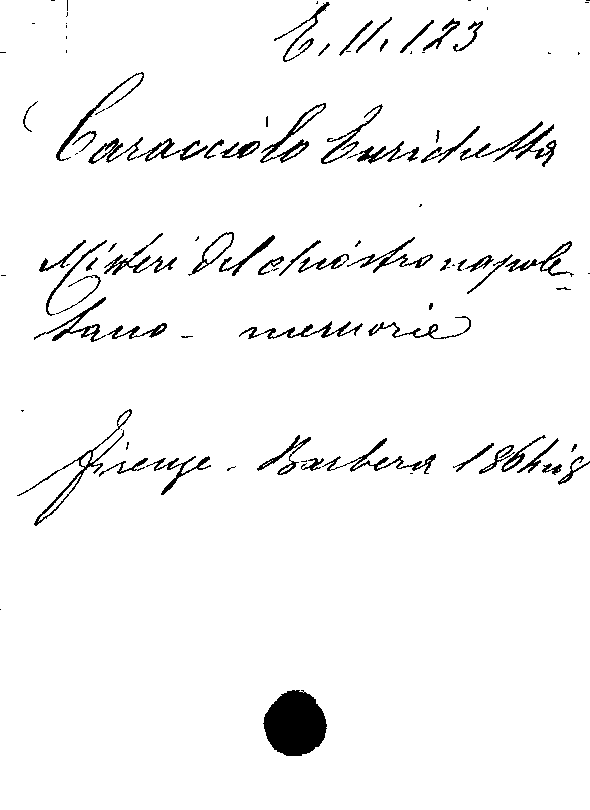 E. 11. 123
Caracciolo Enrichetta
Misteri del chiostro napole=
tano - memorie
Firenze - Barbera 1864 in 8